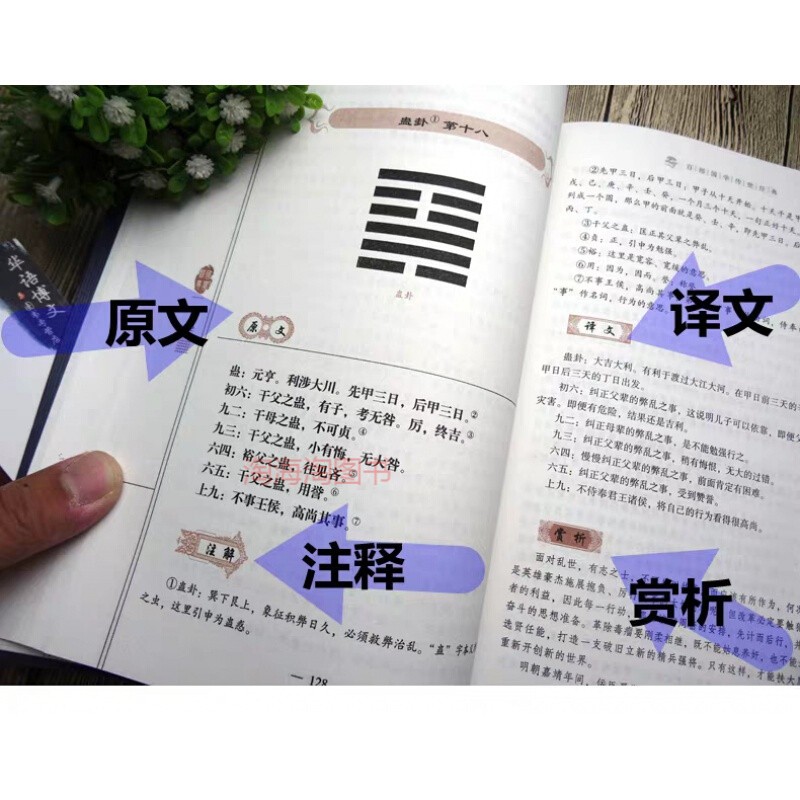 蛊卦①第十八
蛊卦
原文
原文
蛊：元亨。利涉大川。先甲三日，后甲三日。②
初六：干父之蛊，有子，考无咎。厉，终吉。③
九二：干母之蛊，不可贞。④
九三：干父之蛊，小有悔，无大咎。
六四：裕父之蛊，往见吝。⑤
六五：干父之蛊，用誉。⑥
上九：不事王侯，高尚其事。⑦
淘海淘图书
注解
注释
①蛊卦：巽下艮上，象征积弊日久，必须救弊治乱。“蛊”字本
之虫，这里引申为蛊惑。
128
华语博文
②先甲三日，后甲三日：甲子从十天
戊、己、庚、辛、壬、癸，一个月三个十天，一
列成一个圆，那么甲的前面就是癸、壬、辛，即先甲三日，后
丙、丁。
③干父之蛊：匡正其父辈之弊乱。
④贞：正，引申为勉强。
⑤裕：这里是宽容、宽缓的意思。
⑥用：因为，因而。誉：称
⑦不事王侯，高尚其
“事”作名词，行为的意思。
译文
译文
蛊卦：大吉大利。有利于渡过大江大河。在甲日前三天的
甲日后三天的丁日出发。
初六：纠正父辈的弊乱之事，这说明儿子可以依靠，即便父
灾害。即便有危险，结果还是吉利。
九二：纠正母辈的弊乱之事，是不能勉强行之。
九三：纠正父辈的弊乱之事，稍有悔恨，无大的过错。
六四：慢慢纠正父辈的弊乱之事，前面肯定有困难。
六五：纠正父辈的弊乱之事，受到赞誉。
上九：不待奉君王诸侯，将自己的行为看得很高尚。
赏析
赏析
面对乱世，有志之士
是英雄豪杰施展抱负、
者的利益，因此每一行动，
奋斗的思想准备。革除毒瘤要刚柔相继，既不能姑息养奸，也不能
选贤任能，打造一支破旧立新的精兵强将。只有这样，才能
重新开创新的世界。
明朝嘉靖年间，